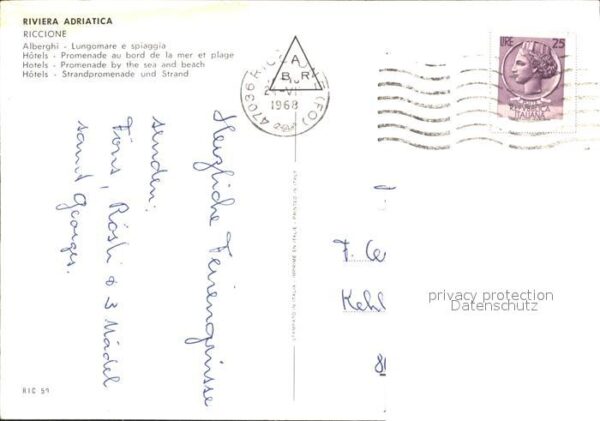 RIVIERA ADRIATICA
RICCIONE
Alberghi - Lungomare e spiaggia
Hôtels - Promenade au bord de la mer et plage
Hotels - Promenade by the sea and beach
Hôtels - Strandpromenade und Strand
47036 RICCIONE (FO)
1968
A
B R
LIRE 25
REPVBBLICA
ITALIANA
Herzliche Feriengrüsse
senden:
Föns, Rösli & 3 Mädel
samt Georges.
Kehl
privacy protection
Datenschutz
RIC 59